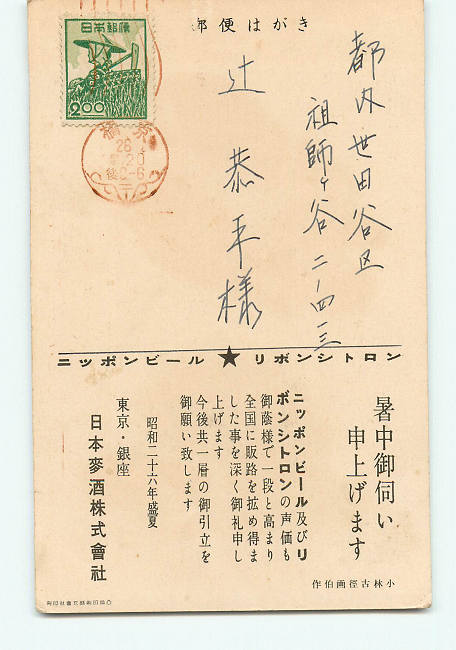 郵便はがき
日本郵便
2.00
京橋
26
20
後0-6
都内世田谷区
祖師ヶ谷二ノ四三
辻恭平様
ニッポンビール★リボンシトロン
暑中御伺い
申上げます
小林古径画伯作
ニッポンビール及びリ
ボンシトロンの声価も
御蔭様で一段と高まり
全国に販路を拡め得ま
した事を深く御礼申し
上げます
今後共一層の御引立を
御願い致します
昭和二十六年盛夏
東京・銀座
日本麥酒株式會社